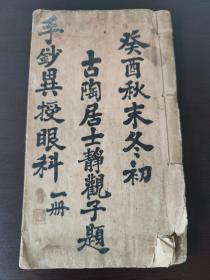 癸酉秋末冬初
古陶居士靜觀子題
手鈔異授眼科一册